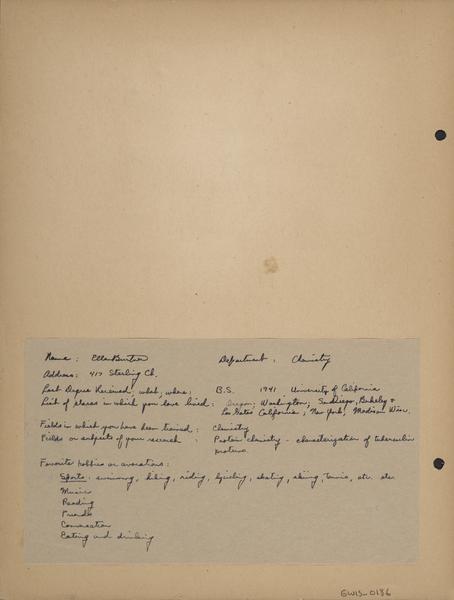 Name: Ella Department: Chemistry
Address: 417 Sterling Ct.
Last Degree Received; what, where: B.S. 1941 University of California
List of places in which you have lived: Oregon; Washington; San Diego, Berkeley &
Los Gatos California; New York; Madison Wisc.
Fields in which you have been trained: Chemistry
Fields or subjects of your research: Protein Chemistry - characterization of tuberculin
proteins.
Favorite hobbies or avocations:
Sports: swimming, hiking, riding, bicycling, skating, skiing, tennis, etc. etc.
Music
Reading
Friends
Conversation
Eating and drinking
GWIS-0186